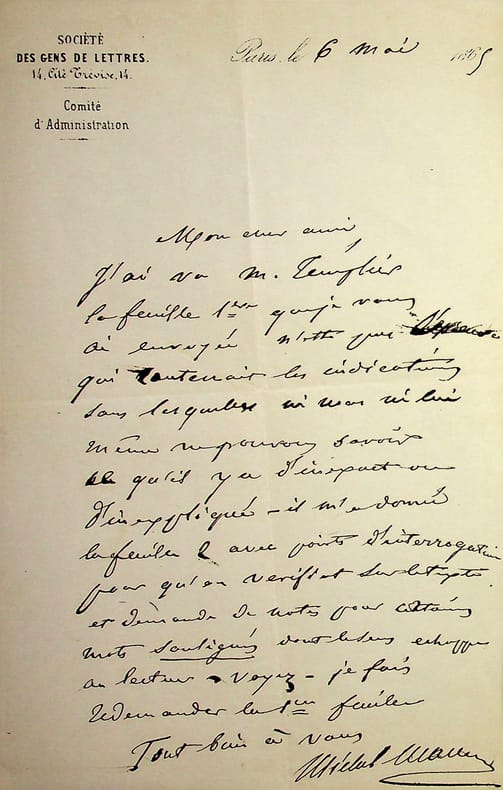 SOCIÉTÉ
DES GENS DE LETTRES.
14, Cité Trévise, 14.
Comité
d'Administration
Paris, le 6 mai 1865
Mon cher ami
J'ai vu M. Templier
la feuille 1ère que je vous
ai envoyé n'etté pas
qui contenait les indications
sans lesquelles ni moi ni lui
même ne pouvons savoir
ce qu'il y a d'inexact ou
d'inexpliqué - il m'a donné
la feuille 2 avec points d'interrogation
pour qu'on verifiat sur le texte
et demande de notes pour certains
mots soulignés dont le sens echappe
au lecteur - Voyez - je fais
redemander la 1ere feuille
Tout bien à vous
Michel Masson